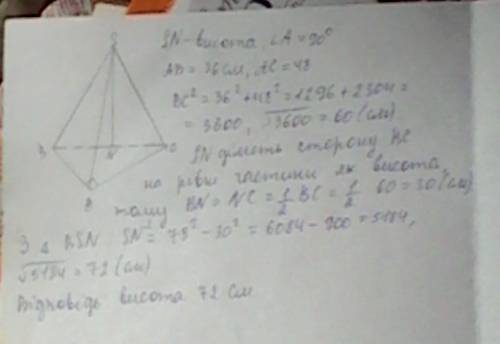 S
B
N
C
A
SN-висота, ∠A = 90°
AB = 36 см, AC = 48
BC² = 36² + 48² = 1296 + 2304 =
= 3600, √3600 = 60 (см)
SN ділить сторону BC
на рівні частини як висота,
тому BN = NC = 1/2 BC = 1/2 60 = 30 (см)
З Δ BSN SN² = 78² - 30² = 6084 - 900 = 5184,
√5184 = 72 (см)
Відповідь висота 72 см